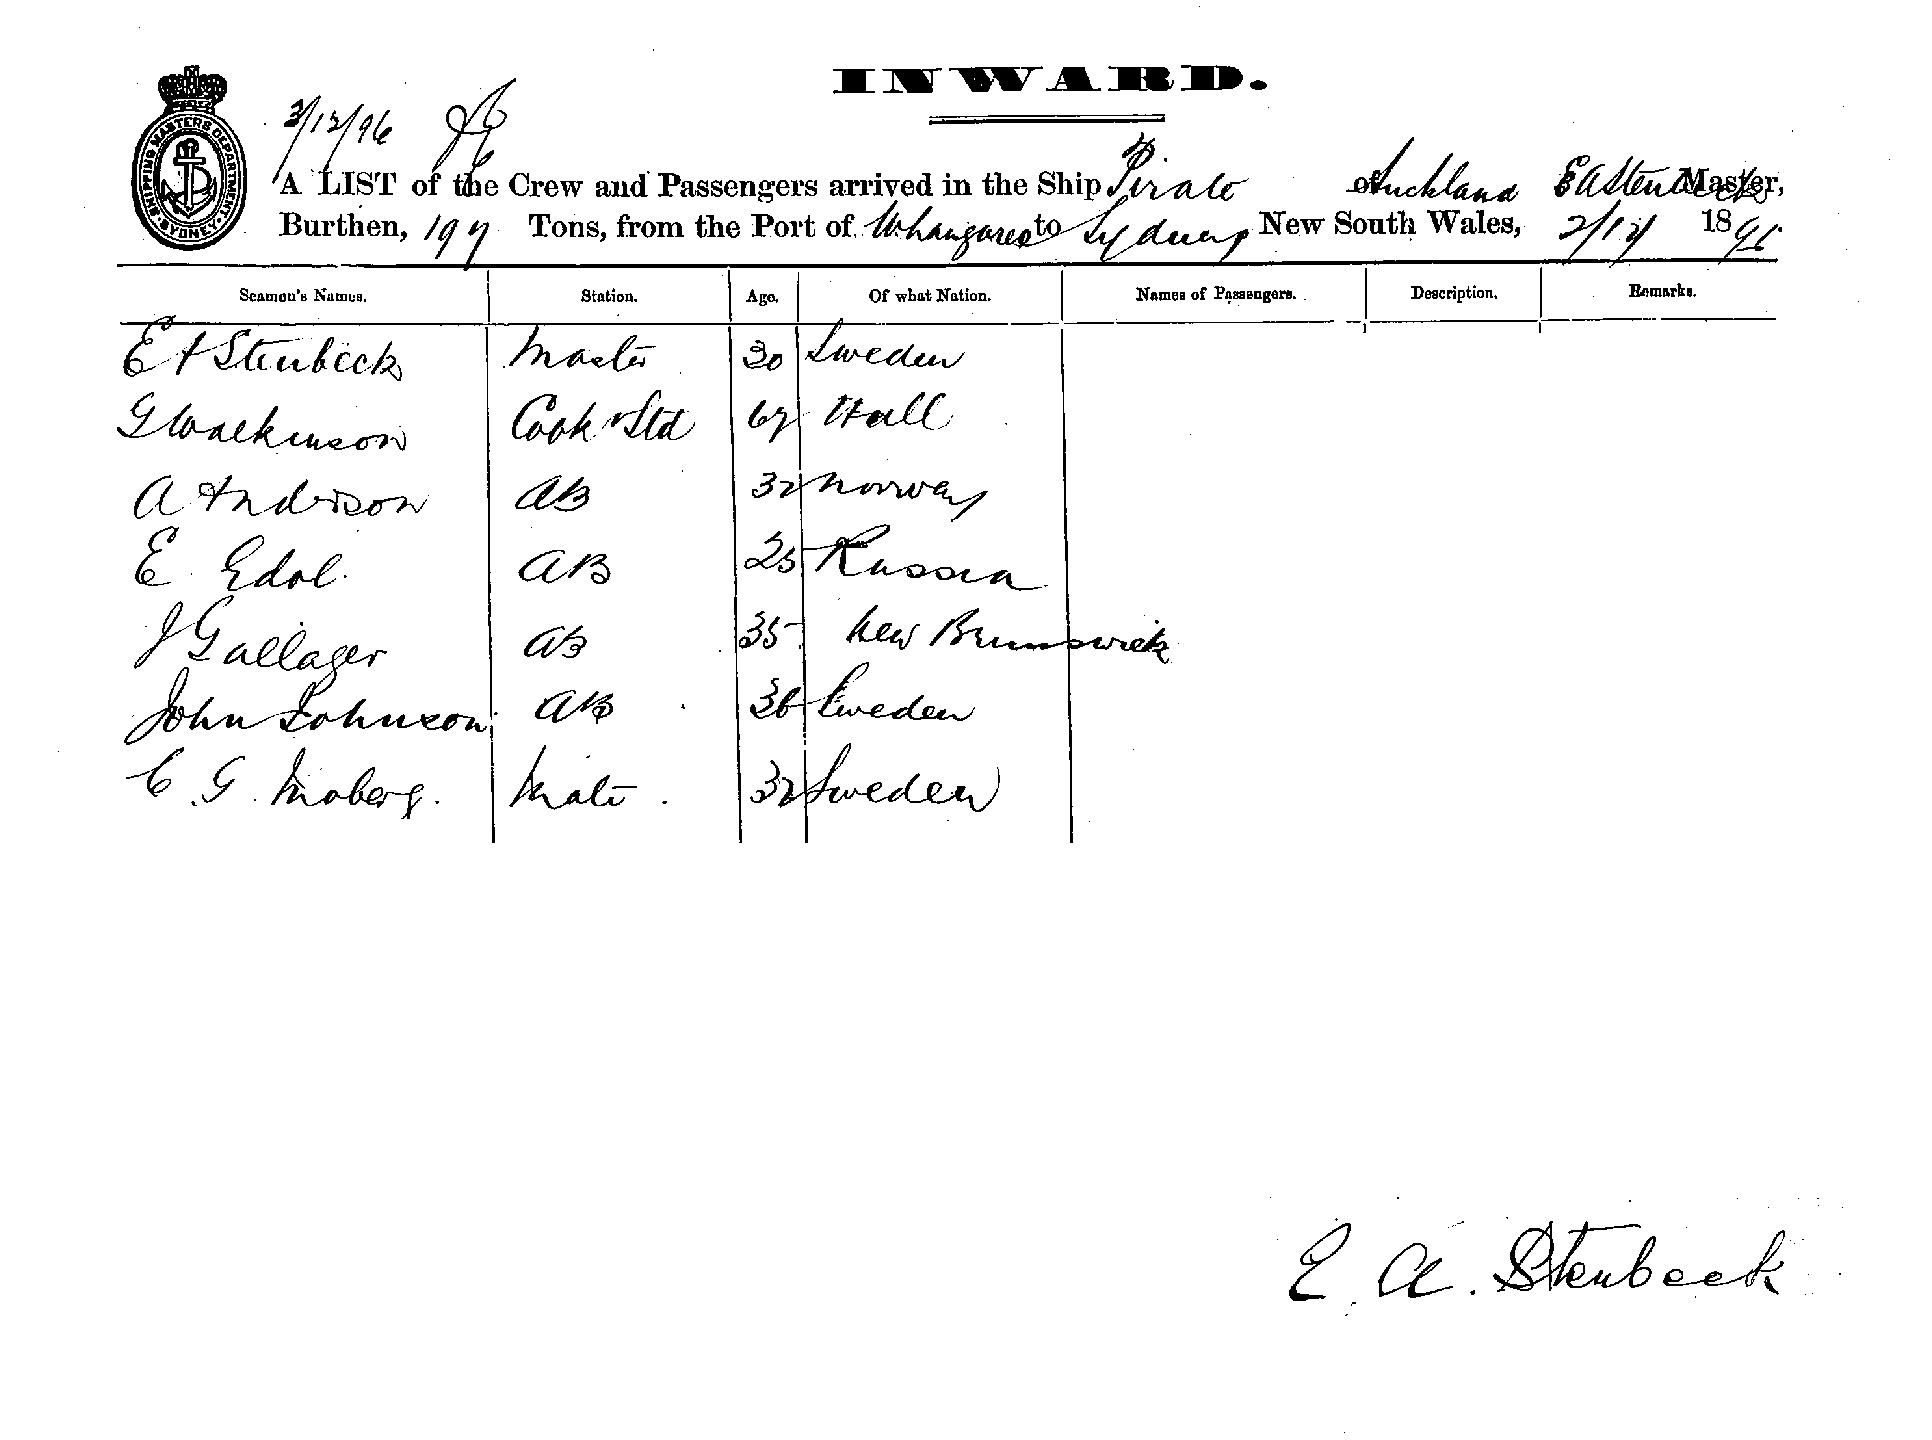 INWARD.
SHIPPING MASTERS DEPARTMENT
SYDNEY
3/12/96
A LIST of the Crew and Passengers arrived in the Ship Pirate of Auckland E A Stenbeck Master,
Burthen, 197 Tons, from the Port of Whangarei to Sydney New South Wales, 2/12 1896
Seamen's Names. Station. Age. Of what Nation. Names of Passengers. Description. Remarks.
E A Stenbeck Master 30 Sweden
G Walkinson Cook & Std 67 Hull
A Anderson AB 32 Norway
E. Edol. AB 25 Russia
J Gallager AB 35 New Brunswick
John Johnson AB 36 Sweden
C. G. Moberg. Mate. 32 Sweden
E. A. Stenbeck